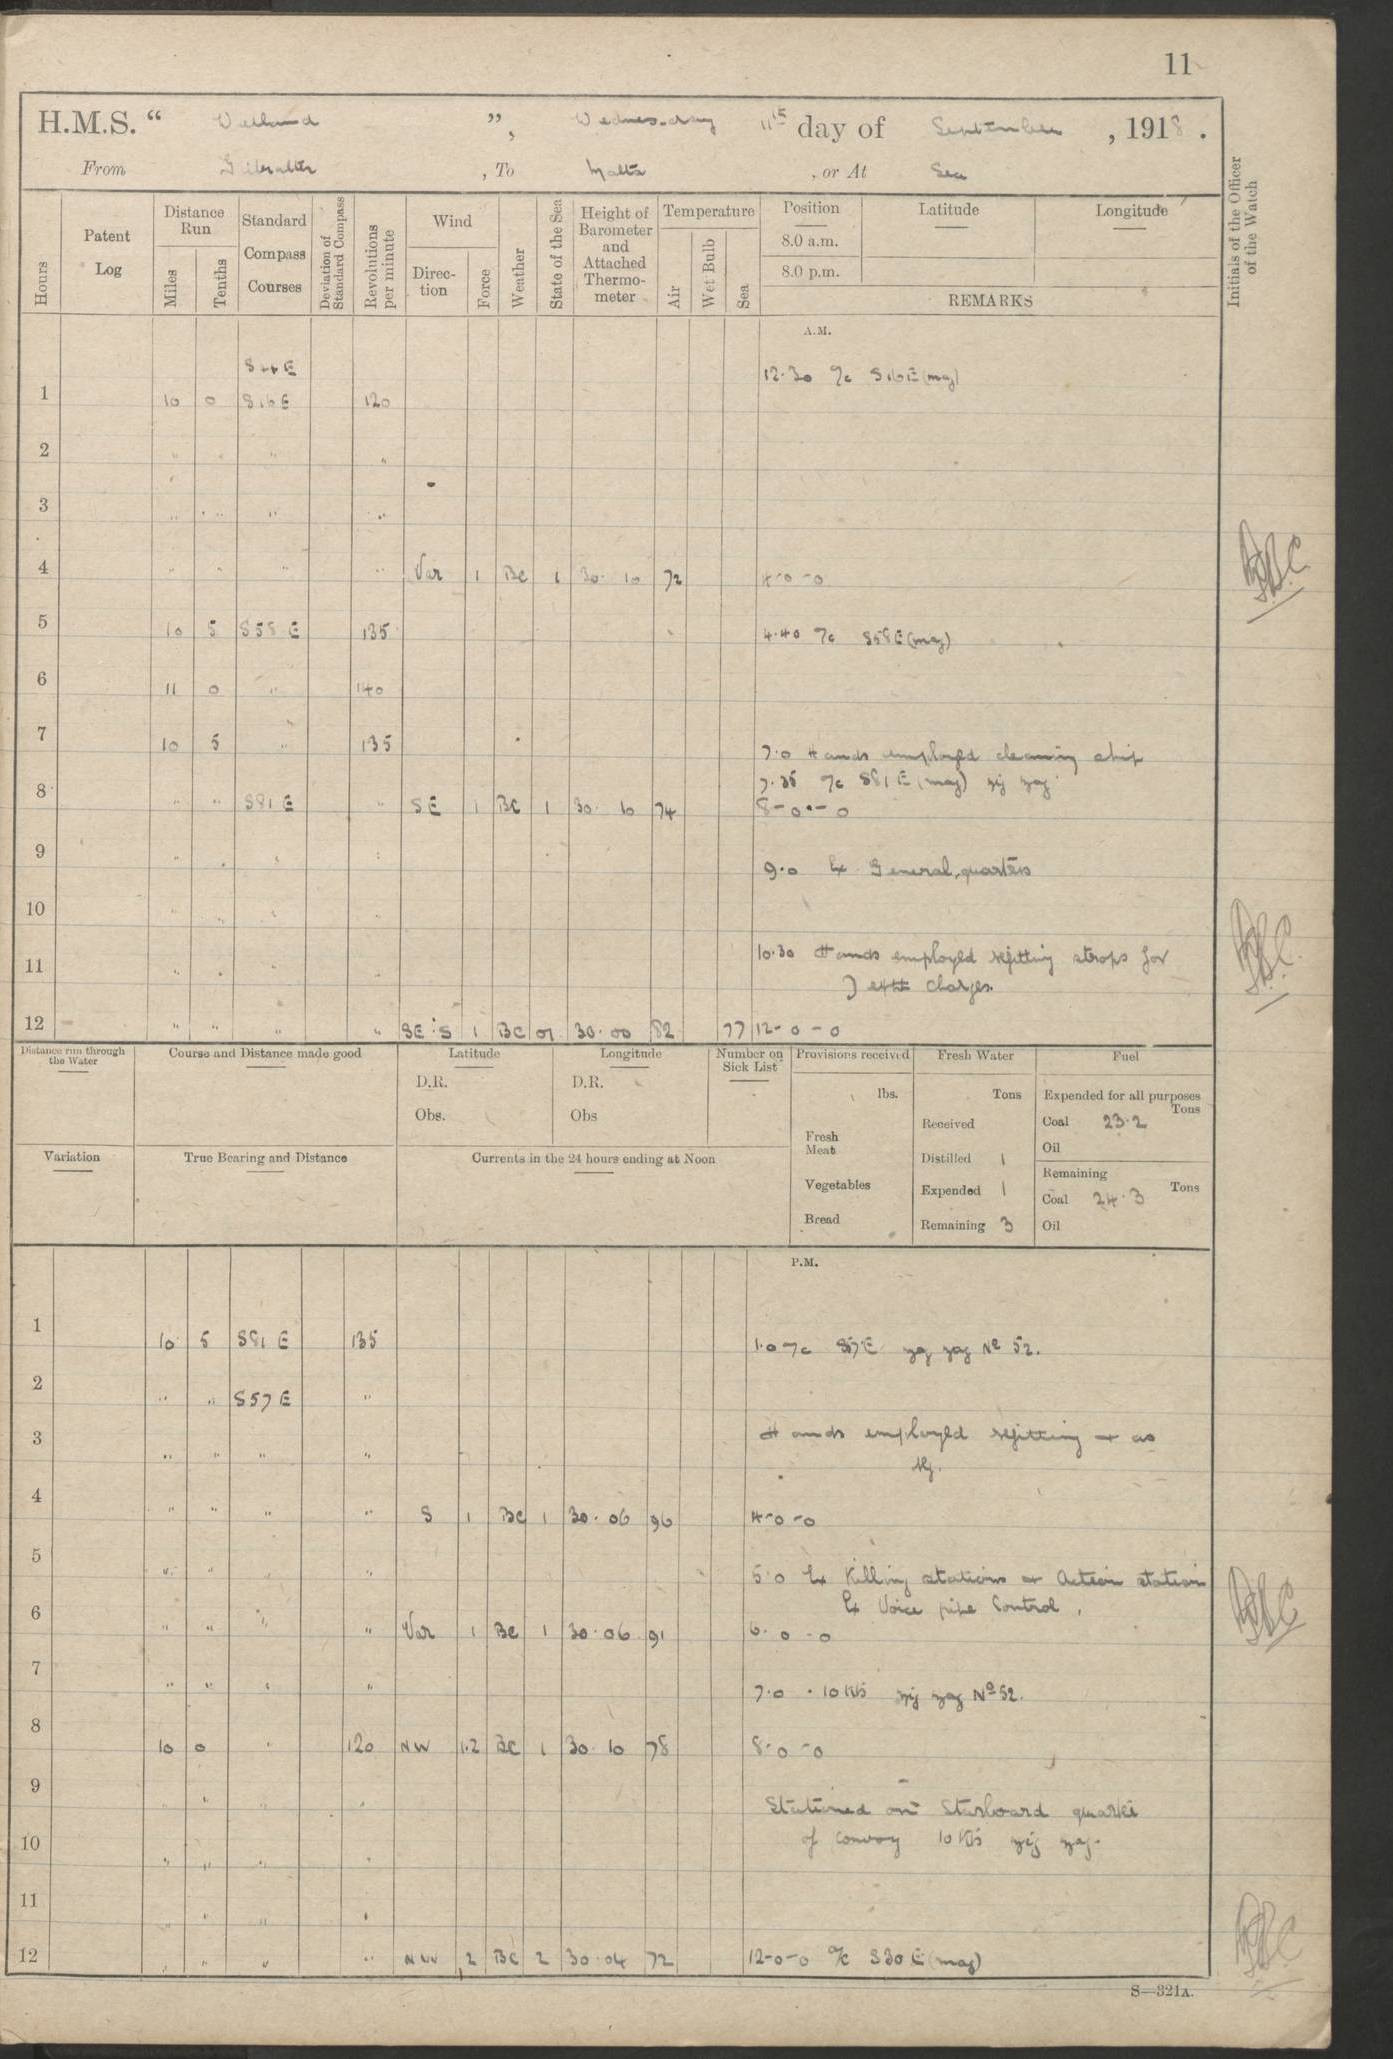 11
H.M.S. “ Welland ”, Wednesday 11th day of September , 1918 .
From Gibralter , To Malta , or At Sea
Hours
Patent Log
Distance Run
Miles
Tenths
Standard Compass Courses
Deviation of Standard Compass
Revolutions per minute
Wind
Direc- tion
Force
Weather
State of the Sea
Height of Barometer and Attached Thermo- meter
Temperature
Air
Wet Bulb
Sea
Position
8.0 a.m.
8.0 p.m.
Latitude
Longitude
REMARKS
Initials of the Officer of the Watch
A.M.
S44E 12.30 a/c S16E (mag)
1 10 0 S16E 120
2 " " " "
3 " " " "
4 " " " " Var 1 BC 1 30. 10 72 4-0-0
5 10 5 S58 E 135 4.40 a/c S58E (mag)
6 11 0 " 140
7 10 5 " 135 7.0 Hands employed cleaning ship
7.35 a/c S81E (mag) zig zag
8 " " S81 E " SE 1 BC 1 30. 10 74 8-0-0
9 " " " " 9.0 Ex General quarters
10 " " " "
11 " " " " 10.30 Hands employed refitting strops for
D charges.
12 " " " " SE'S 1 BC 01 30.00 82 77 12-0-0
Distance run through the Water
Course and Distance made good
Latitude
D.R.
Obs.
Longitude
D.R.
Obs
Number on Sick List
Provisions received
lbs.
Fresh Meat
Vegetables
Bread
Fresh Water
Tons
Received
Distilled 1
Expended 1
Remaining 3
Fuel
Expended for all purposes
Tons
Coal 23.2
Oil
Remaining
Tons
Coal 24.3
Oil
Variation
True Bearing and Distance
Currents in the 24 hours ending at Noon
P.M.
1 10 5 S81 E 135 1.0 a/c S57E zig zag No 52.
2 " " S57 E "
3 " " " " Hands employed refitting + as
req.
4 " " " " S 1 BC 1 30.06 96 4-0-0
5 " " " " 5.0 Ex Killing stations + Action station
Ex Voice pipe Control.
6 " " " " Var 1 BC 1 30.06 91 6.0-0
7 " " " " 7.0 . 10 Kts zig zag No 52.
8 10 0 " 120 NW 1.2 BC 1 30.10 78 8-0-0
9 " " " " Stationed on Starboard quarter
10 " " " " of convoy 10 Kts zig zag.
11 " " " "
12 " " " " NW 2 BC 2 30.04 72 12-0-0 a/c S30E (mag)
S—321A.